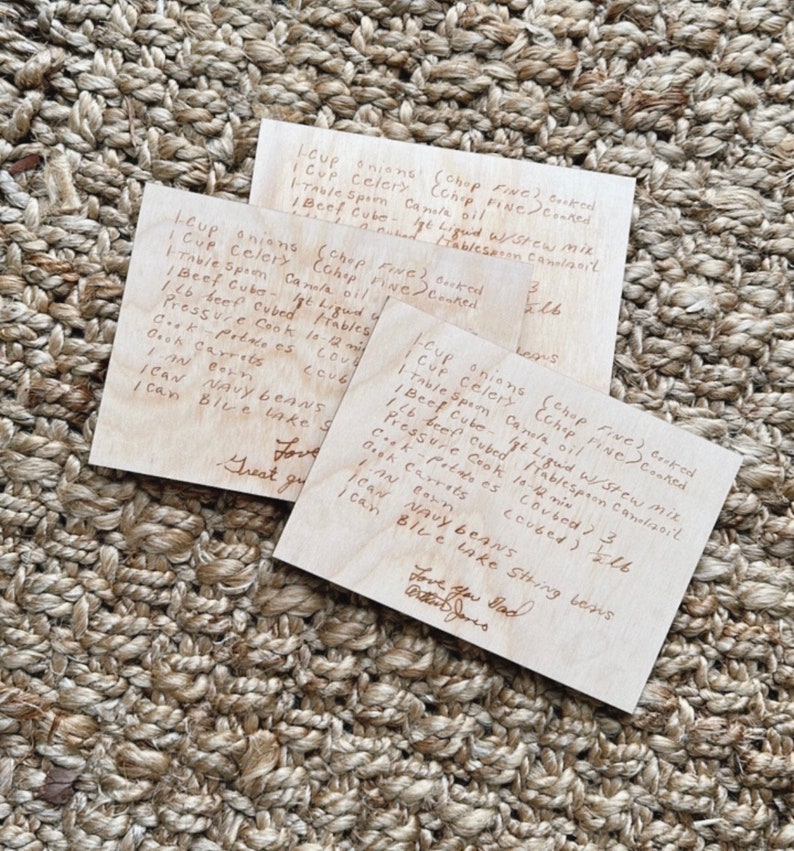 1-Cup onions (Chop Fine) Cooked
1 Cup Celery (Chop Fine) Cooked
1-Tablespoon Canola oil
1 Beef Cube - 1qt Liquid w/Stew mix
1 lb beef Cubed 1 Tablespoon Canola oil
3
1/2 lb
beans
1-Cup onions (Chop Fine) Cooked
1 Cup Celery (Chop Fine) Cooked
1-Tablespoon Canola oil
1 Beef Cube - 1qt Liquid w/
1 lb beef Cubed 1 Tables
Pressure Cook 10-12 min
Cook - Potatoes (Cu
Cook Carrots (Cub
1 Can Corn
1 Can Navy beans
1 Can Blue Lake S
Love
Great
1-Cup onions (Chop Fine) Cooked
1 Cup Celery (Chop Fine) Cooked
1-Tablespoon Canola oil
1 Beef Cube - 1qt Liquid w/Stew mix
1 lb beef Cubed 1 Tablespoon Canola oil
Pressure Cook 10-12 min
Cook - Potatoes (Cubed) 3
Cook Carrots (Cubed) 1/2 lb
1 Can Corn
1 Can Navy beans
1 Can Blue Lake String beans
Love you Dad
Jones